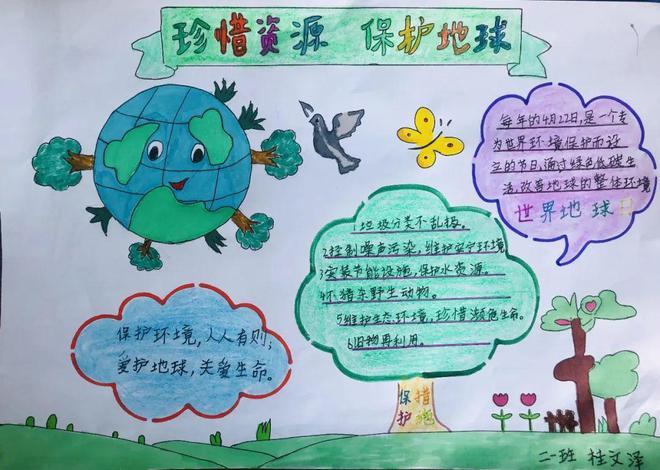 珍惜资源 保护地球
每年的4月22日,是一个专
为世界环境保护而设
立的节日,通过绿色低碳生
活,改善地球的整体环境
世界地球日
1垃圾分类不乱扔。
2控制噪声污染,维护安宁环境
3安装节能设施,保护水资源。
4不猎杀野生动物。
5维护生态环境,珍惜濒危生命。
6旧物再利用。
保护环境,人人有则;
爱护地球,关爱生命。
保措
护施
二一班 桂文泽